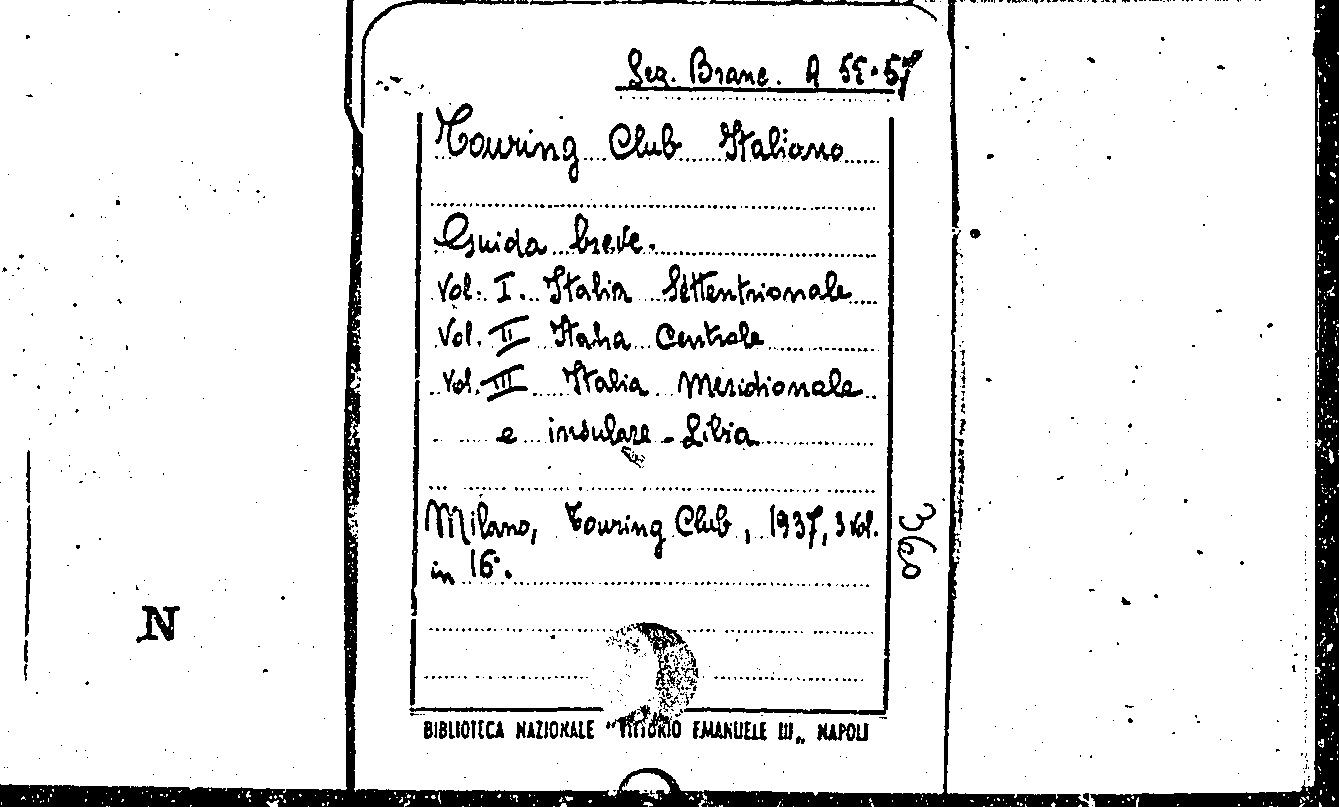 Sez. Branc. A 55-57
Touring Club Italiano
Guida breve.
Vol. I. Italia Settentrionale
Vol. II Italia Centrale
Vol. III Italia Meridionale
e insulare - Libia
Milano, Touring Club, 1937, 3 vol.
in 16°.
360
N
BIBLIOTECA NAZIONALE "VITTORIO EMANUELE III„ NAPOLI